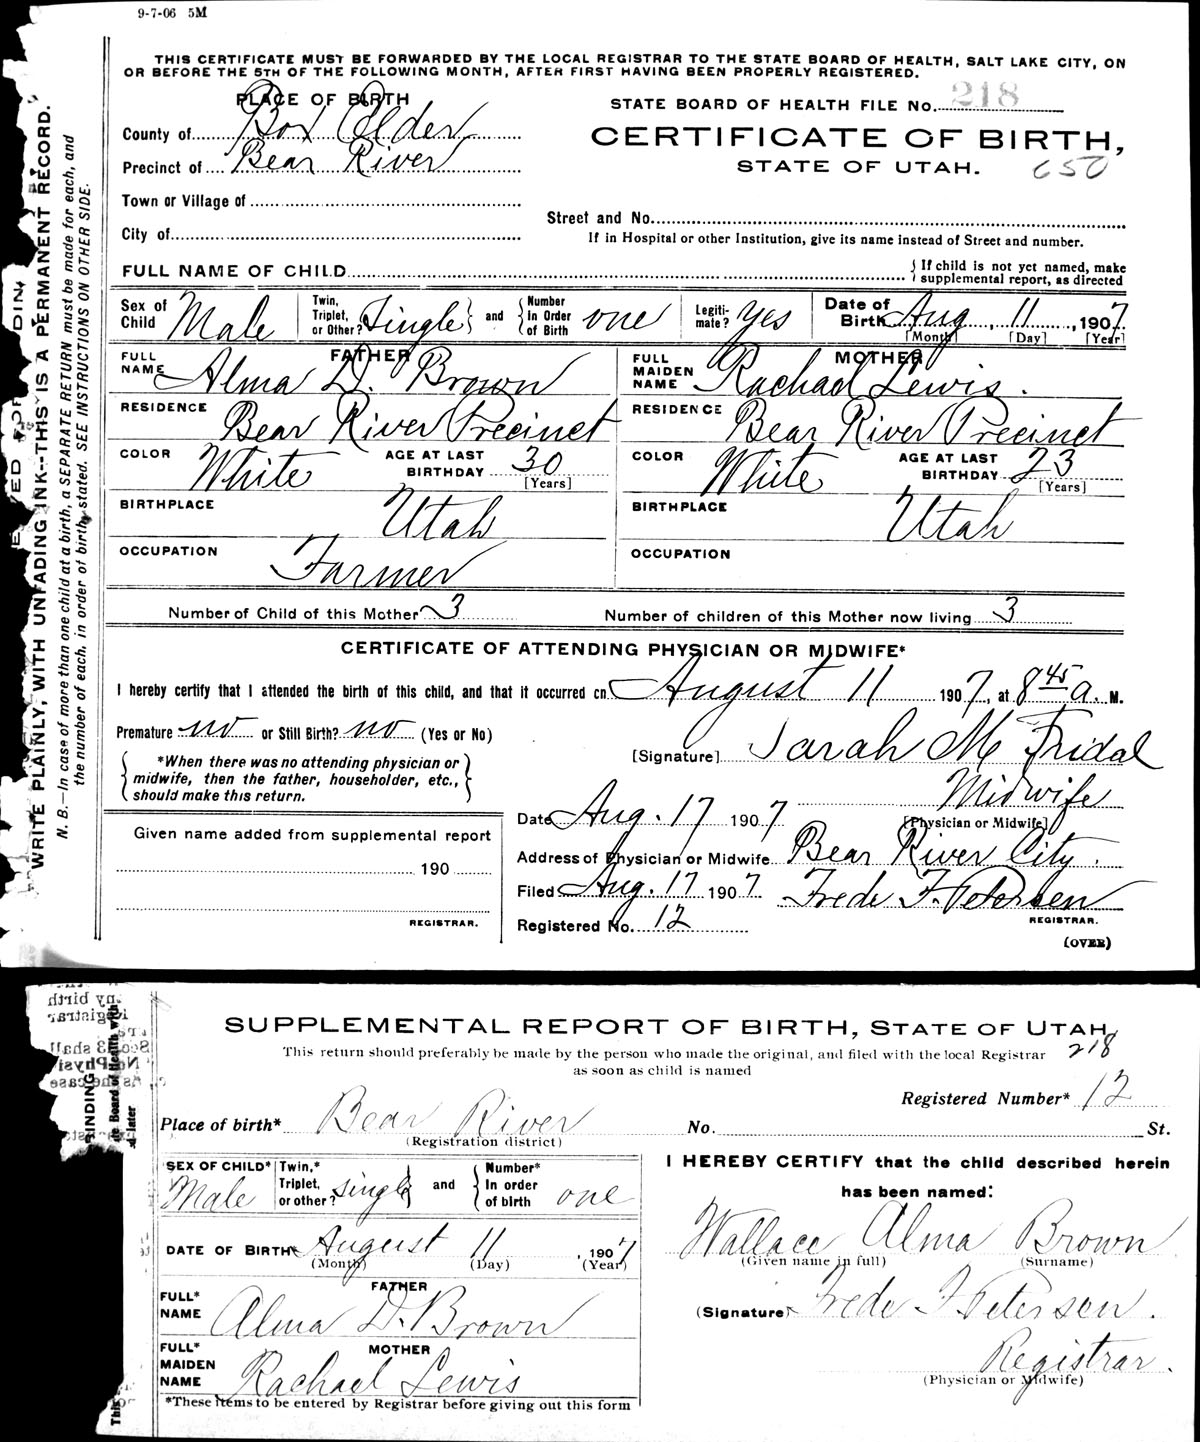 9-7-06 5M
THIS CERTIFICATE MUST BE FORWARDED BY THE LOCAL REGISTRAR TO THE STATE BOARD OF HEALTH, SALT LAKE CITY, ON
OR BEFORE THE 5TH OF THE FOLLOWING MONTH, AFTER FIRST HAVING BEEN PROPERLY REGISTERED.
PLACE OF BIRTH
STATE BOARD OF HEALTH FILE No. 218
County of Box Elder
CERTIFICATE OF BIRTH,
Precinct of Bear River
STATE OF UTAH. 650
Town or Village of
Street and No.
City of
If in Hospital or other Institution, give its name instead of Street and number.
FULL NAME OF CHILD { If child is not yet named, make supplemental report, as directed
Sex of Child Male Twin, Triplet, or Other? Single } and { Number In Order of Birth one Legiti- mate? Yes Date of Birth Aug. 11, 1907
[Month] [Day] [Year]
FATHER MOTHER
FULL NAME Alma D. Brown FULL MAIDEN NAME Rachael Lewis.
RESIDENCE Bear River Precinct RESIDENCE Bear River Precinct
COLOR White AGE AT LAST BIRTHDAY 30 [Years] COLOR White AGE AT LAST BIRTHDAY 23 [Years]
BIRTHPLACE Utah BIRTHPLACE Utah
OCCUPATION Farmer OCCUPATION
Number of Child of this Mother 3 Number of children of this Mother now living 3
CERTIFICATE OF ATTENDING PHYSICIAN OR MIDWIFE*
I hereby certify that I attended the birth of this child, and that it occurred on August 11 1907, at 8 45 a. M.
Premature no or Still Birth? no (Yes or No)
[Signature] Sarah M Fridal
*When there was no attending physician or
midwife, then the father, householder, etc.,
should make this return.
Midwife
[Physician or Midwife]
Date Aug. 17 1907
Given name added from supplemental report
190
REGISTRAR.
Address of Physician or Midwife Bear River City.
Filed Aug. 17 1907 Frede F. Petersen
REGISTRAR.
Registered No. 12
(OVER)
WRITE PLAINLY, WITH UNFADING INK--THIS IS A PERMANENT RECORD.
N. B.—In case of more than one child at a birth, a SEPARATE RETURN must be made for each, and
the number of each, in order of birth, stated. SEE INSTRUCTIONS ON OTHER SIDE.
SUPPLEMENTAL REPORT OF BIRTH, STATE OF UTAH,
This return should preferably be made by the person who made the original, and filed with the local Registrar 218
as soon as child is named
Registered Number* 12
Place of birth* Bear River No. St.
(Registration district)
SEX OF CHILD* Male Twin,* Triplet, or other? single } and { Number* In order of birth one
I HEREBY CERTIFY that the child described herein
has been named:
Wallace Alma Brown
(Given name in full) (Surname)
DATE OF BIRTH* August 11, 1907
(Month) (Day) (Year)
FATHER
FULL* NAME Alma D. Brown
(Signature) Frede F Petersen.
MOTHER
FULL* MAIDEN NAME Rachael Lewis
Registrar.
(Physician or Midwife)
*These items to be entered by Registrar before giving out this form